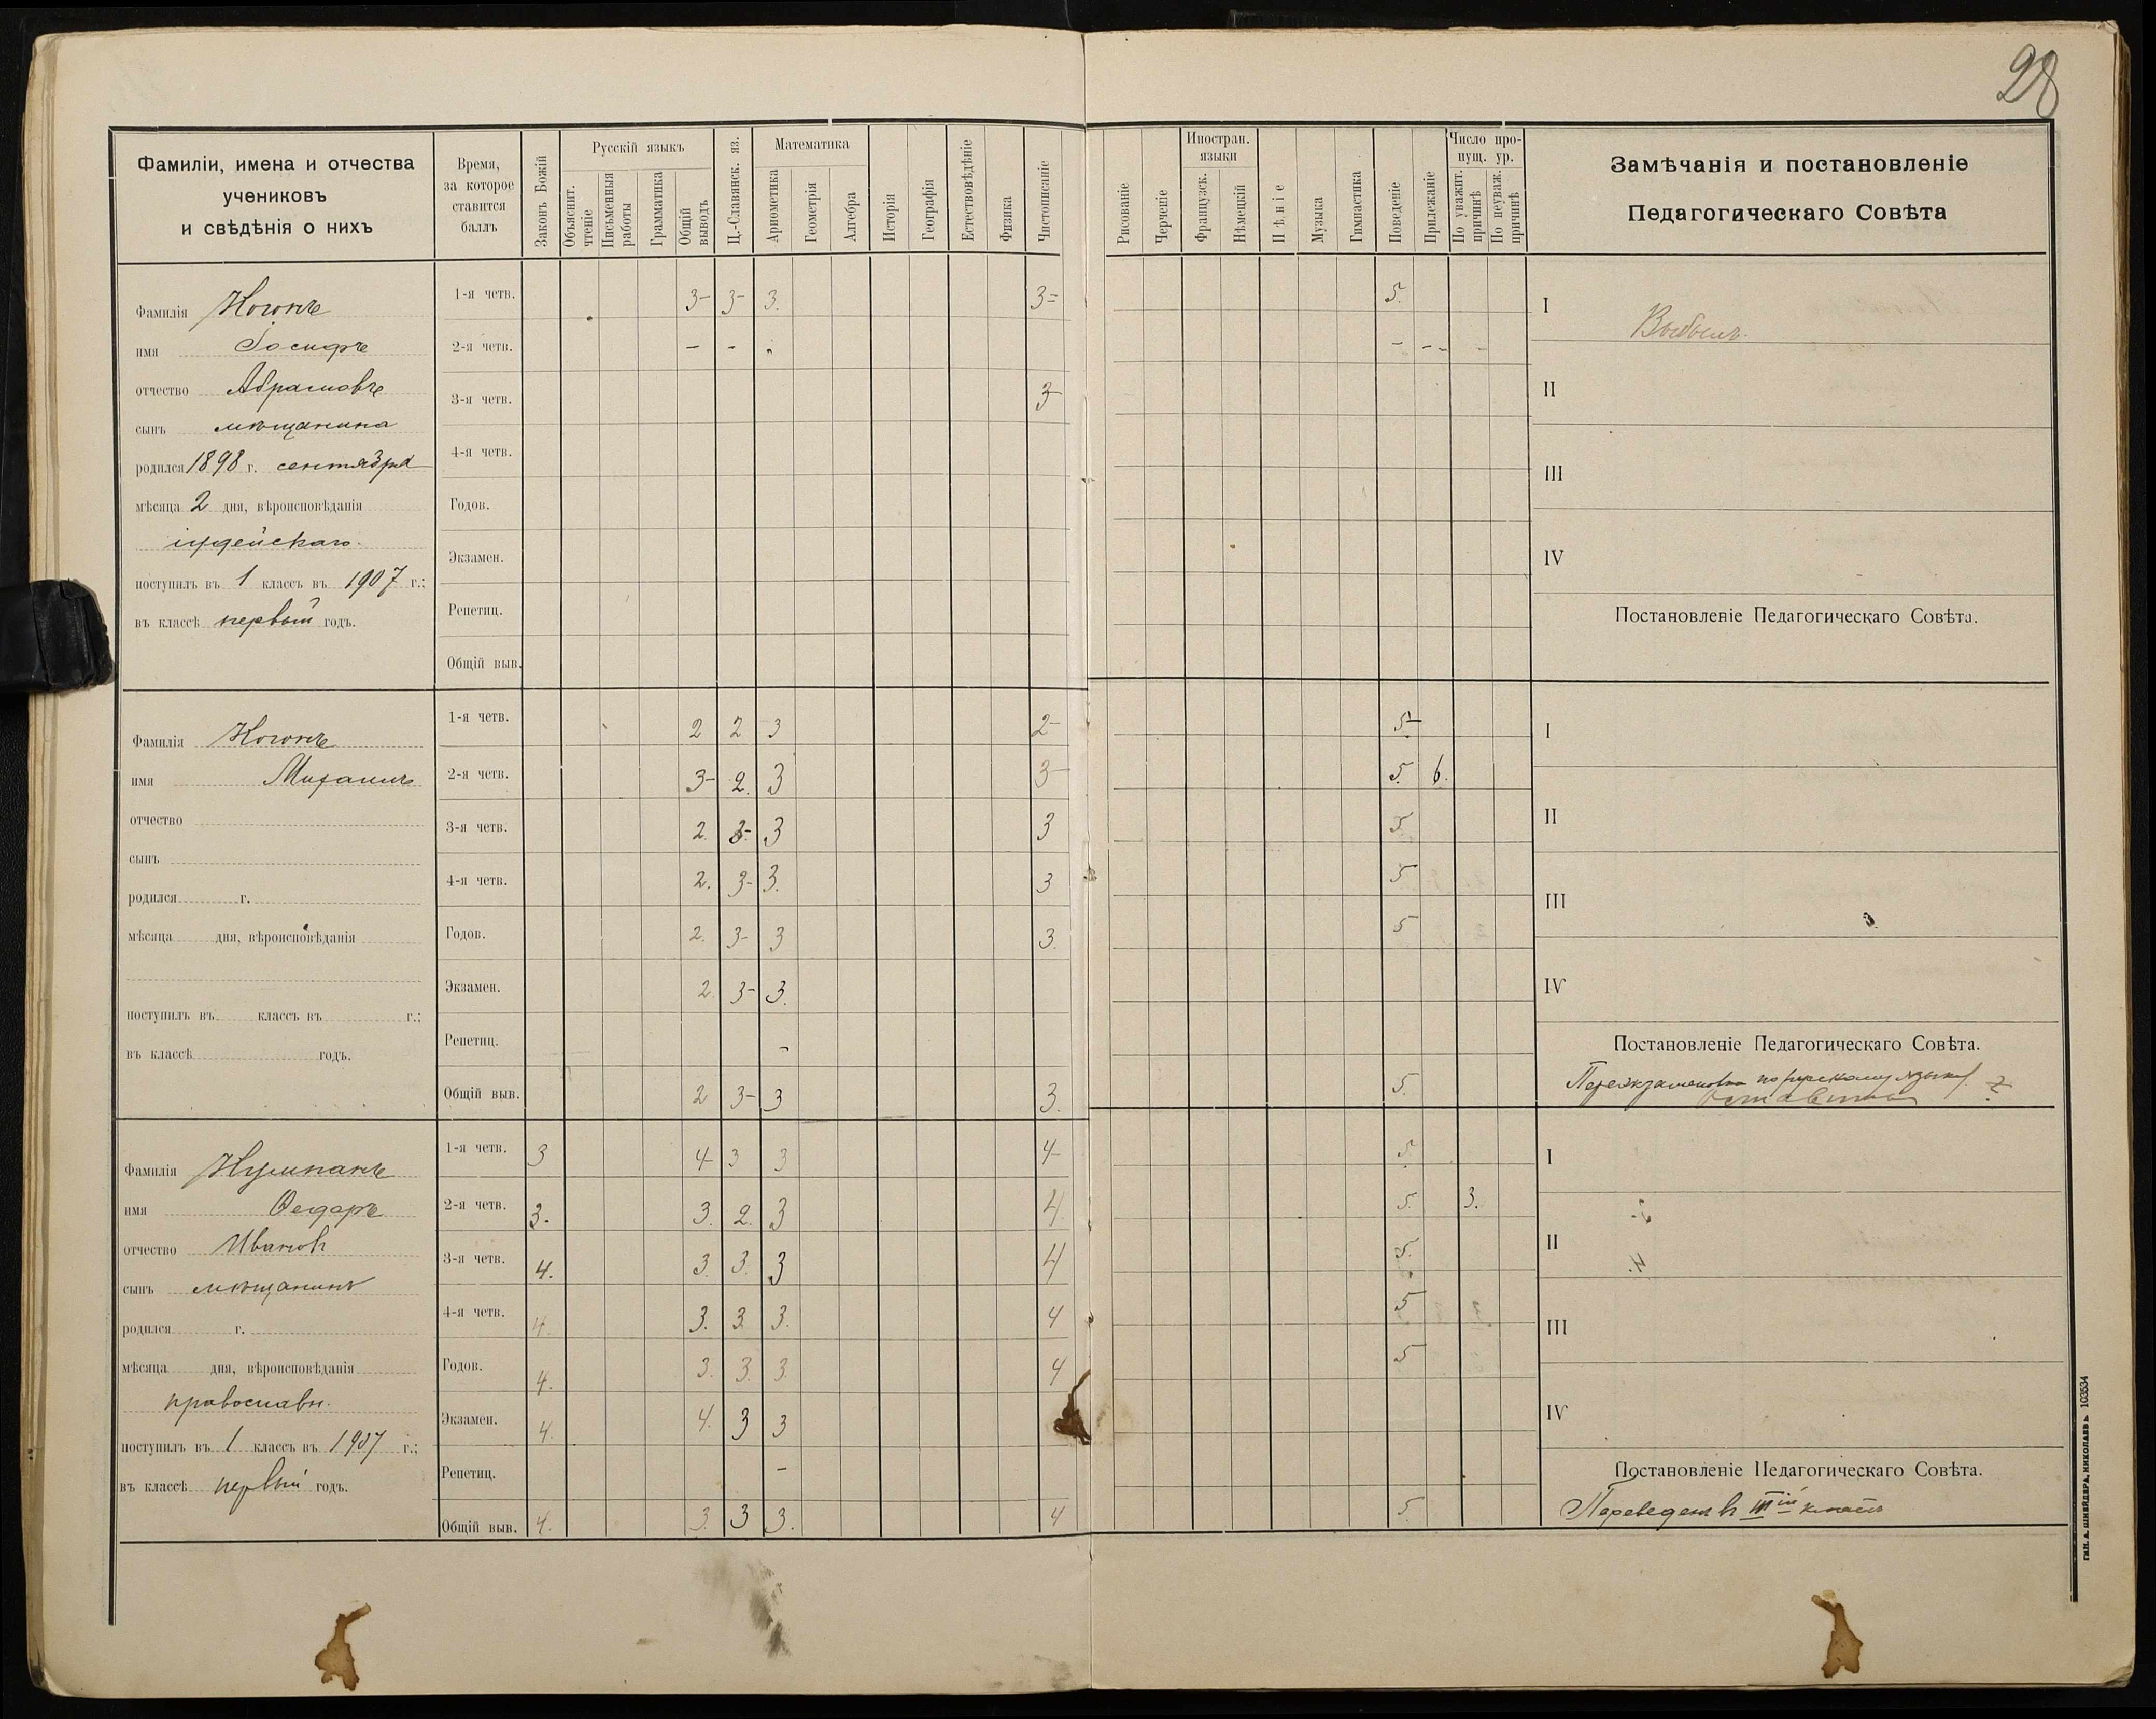 28
Фамиліи, имена и отчества
учениковъ
и свѣдѣнія о нихъ
Время,
за которое
ставится
баллъ
Законъ Божій
Русскій языкъ
Объяснит.
чтеніе
Письменныя
работы
Грамматика
Общій
выводъ
Ц.-Славянск. яз.
Математика
Ариѳметика
Геометрія
Алгебра
Исторія
Географія
Естествовѣдѣніе
Физика
Чистописаніе
Рисованіе
Черченіе
Иностран.
языки
Французск.
Нѣмецкій
Пѣніе
Музыка
Гимнастика
Поведеніе
Прилежаніе
Число про-
пущ. ур.
По уважит.
причинѣ
По неуваж.
причинѣ
Замѣчанія и постановленіе
Педагогическаго Совѣта
Фамилія
имя Іосифъ
отчество Абрамовъ
сынъ мѣщанина
родился 1898 г. сентября
мѣсяца 2 дня, вѣроисповѣданія
іудейскаго.
поступилъ въ 1 классъ въ 1907 г.;
въ классѣ первый годъ.
1-я четв. 3- 3- 3. 3= 5.
2-я четв. - - . - - - -
3-я четв. 3-
4-я четв.
Годов.
Экзамен.
Репетиц.
Общій выв.
I
Выбылъ.
II
III
IV
Постановленіе Педагогическаго Совѣта.
Фамилія
имя Михаилъ
отчество
сынъ
родился г.
мѣсяца дня, вѣроисповѣданія
поступилъ въ классъ въ г.;
въ классѣ годъ.
1-я четв. 2 2 3 2- 5-
2-я четв. 3- 2. 3 3- 5. 6.
3-я четв. 2. 3-. 3 3 5
4-я четв. 2. 3- 3. 3 5
Годов. 2. 3- 3 3. 5
Экзамен. 2. 3- 3.
Репетиц. -
Общій выв. 2 3- 3 3. 5.
I
II
III
IV
Постановленіе Педагогическаго Совѣта.
Переэкзаменовка по русскому языку. 2
Оставить
Фамилія
имя Ѳедоръ
отчество Иванов
сынъ мѣщанинъ
родился г.
мѣсяца дня, вѣроисповѣданія
православн.
поступилъ въ 1 классъ въ 1907 г.;
въ классѣ первый годъ.
1-я четв. 3 4 3 3 4 5.
2-я четв. 3. 3. 2. 3 4 5. 3.
3-я четв. 4. 3. 3. 3 4 5.
4-я четв. 4. 3. 3. 3. 4 5
Годов. 4. 3. 3. 3. 4 5
Экзамен. 4. 4. 3 3
Репетиц. -
Общій выв. 4. 3. 3 3. 4 5.
I
II
III
IV
Постановленіе Педагогическаго Совѣта.
Переведен в IIIій класс
тип. А. Шнейдера, Николаевъ. 103534